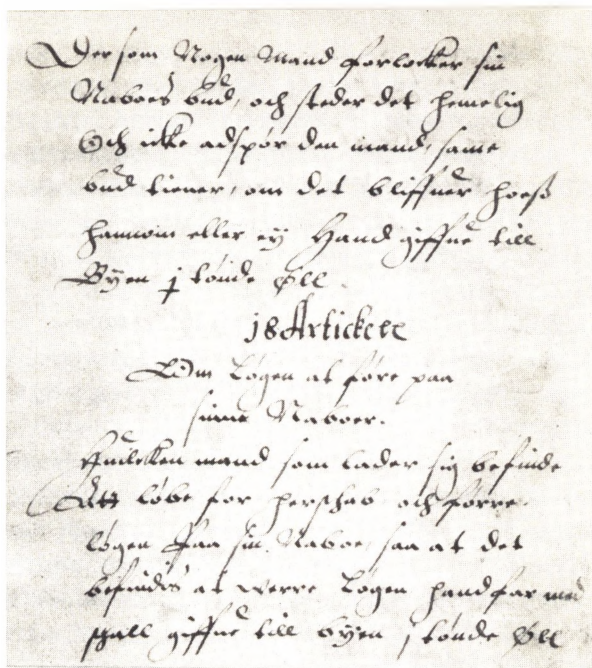 Dersom Nogen Mand forlocker sin
Naboes bud, och steder det hemelig
Och icke adspør den mand, same
bud tiener, om det bliffuer hoesß
hannom eller ey Hand giffue till
Byen j tønde Øll.
18 Artickell
Om Løgen at føre paa
sinne Naboer.
Huilcken mand som lader sig befinde
Att løbe for herschab och førre
løgen paa sin Naboe, saa at det
befindis at werre Løgen hand far med
schall giffue till byen j tønde Øll